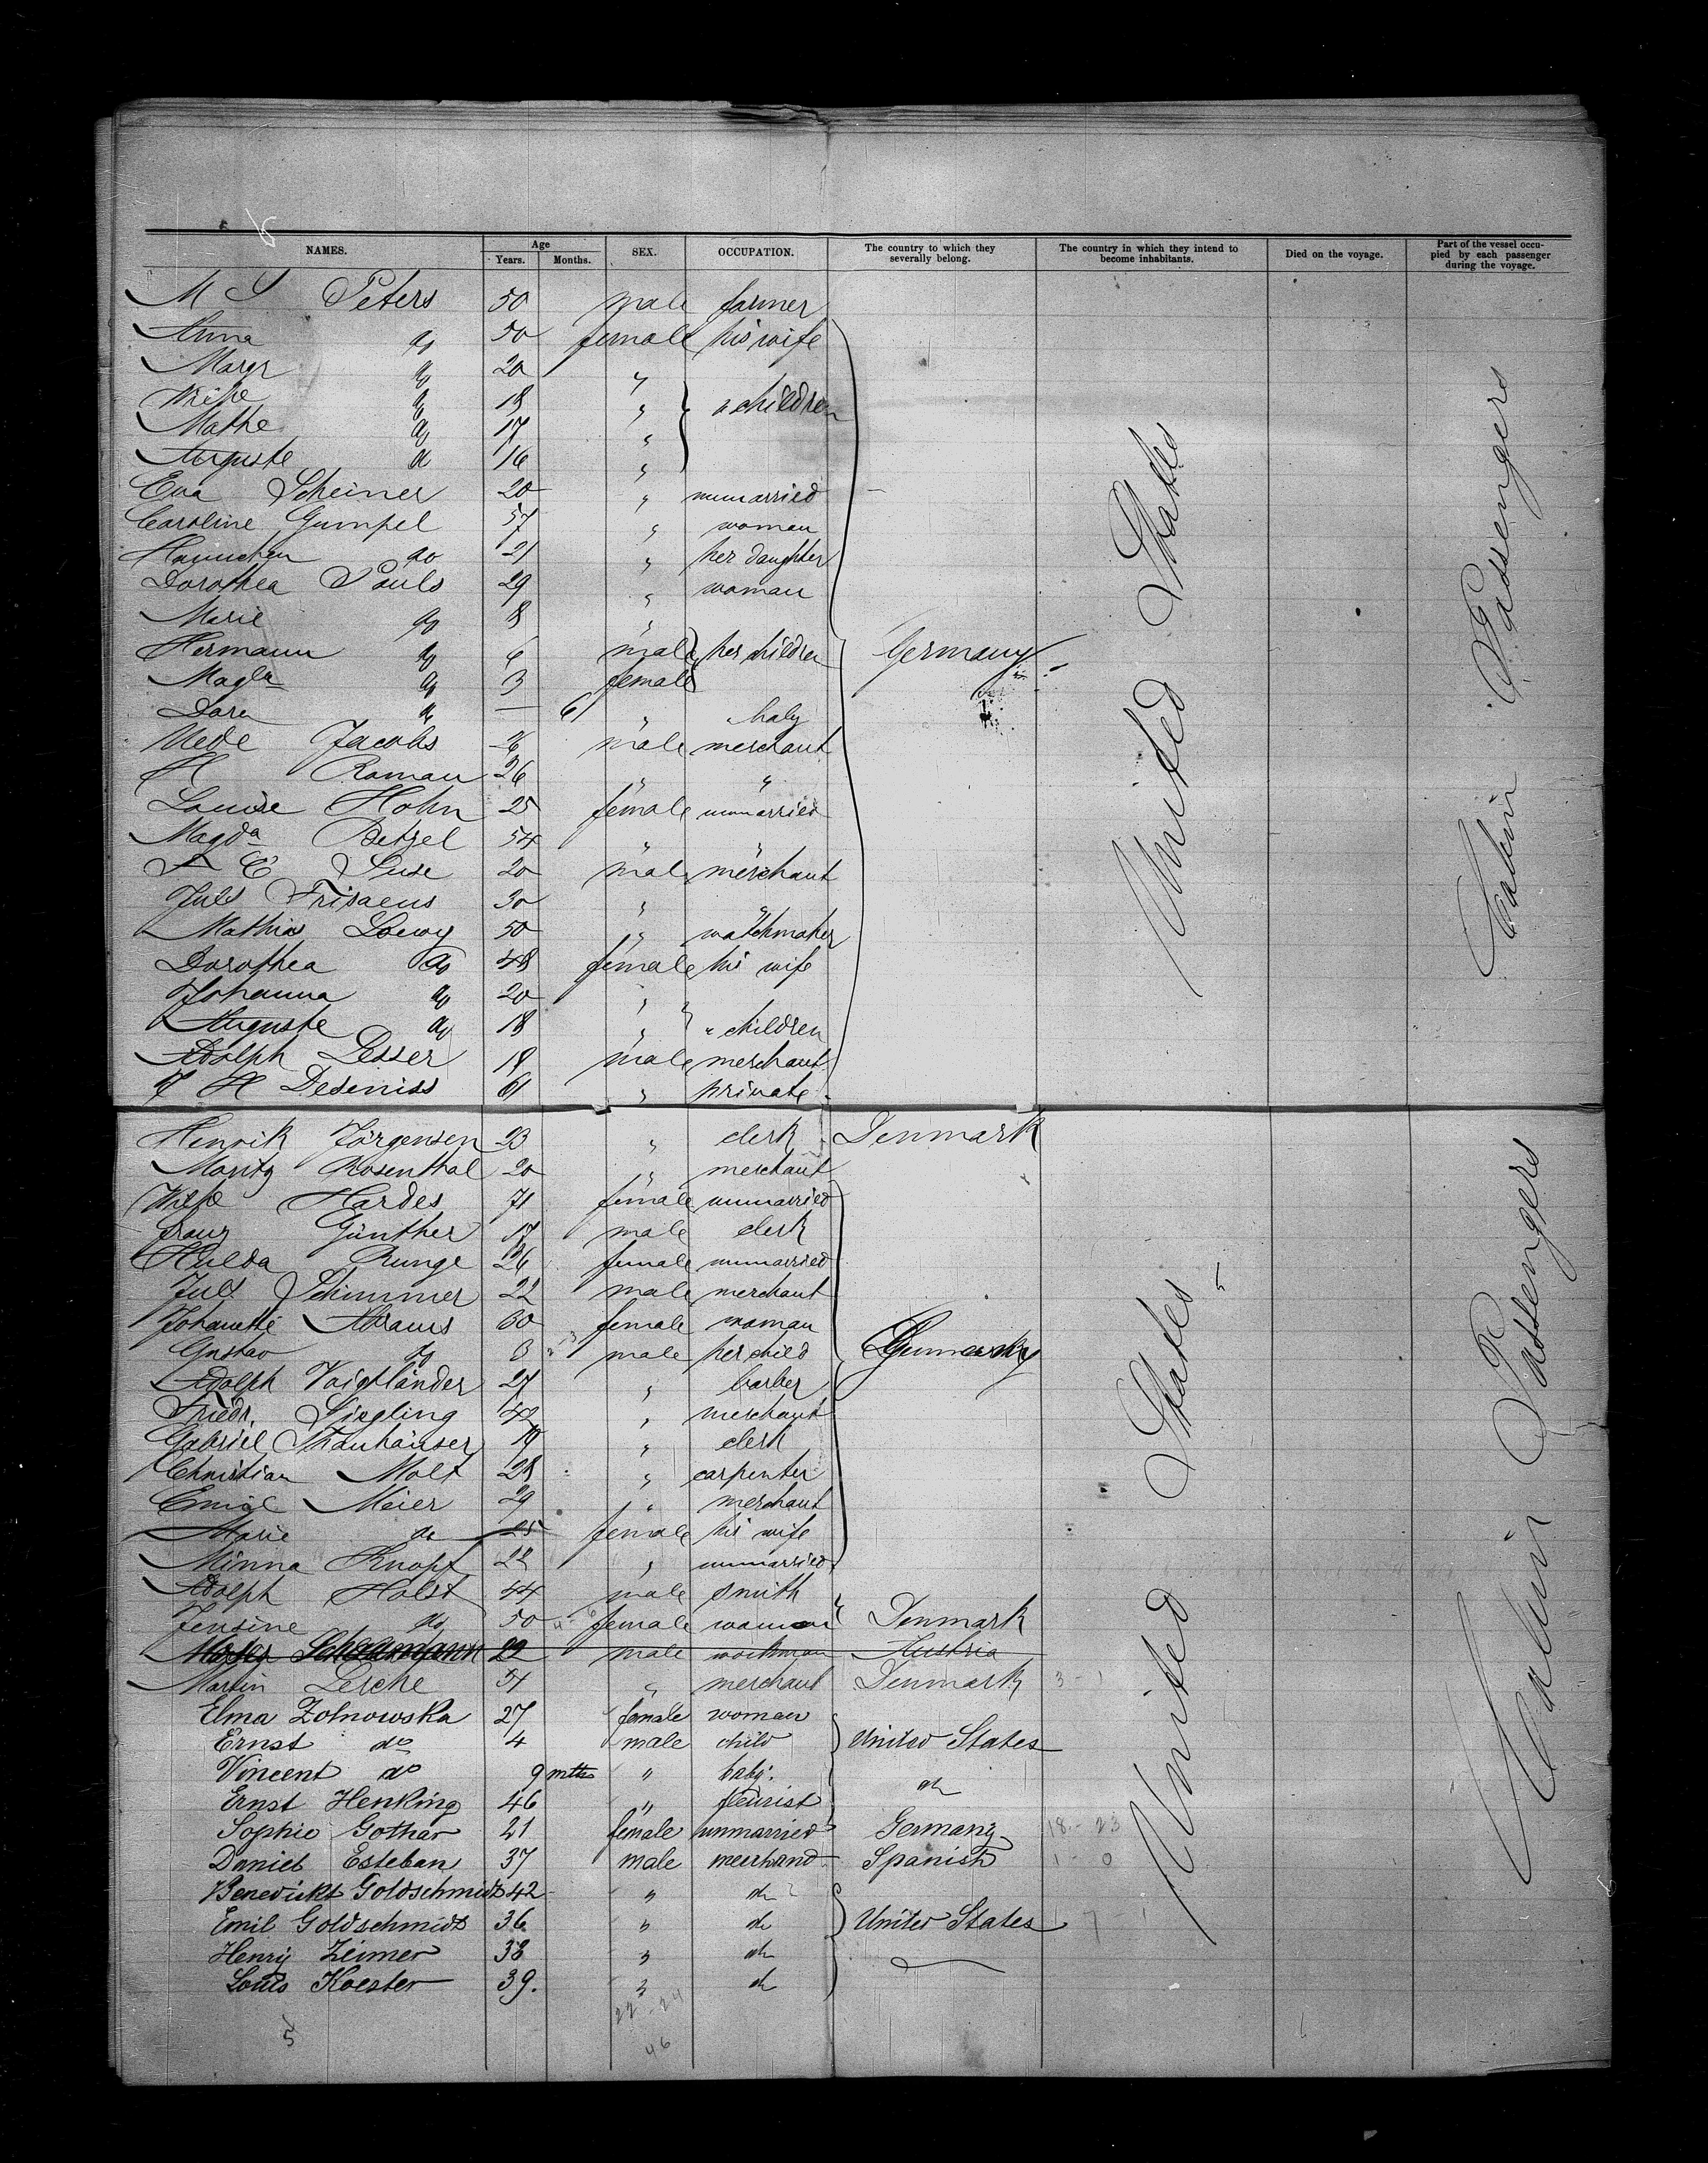 NAMES. Age Years. Months. SEX. OCCUPATION. The country to which they severally belong. The country in which they intend to become inhabitants. Died on the voyage. Part of the vessel occupied by each passenger during the voyage.
M Peters 50 male farmer
Anna do 50 female his wife
Margr do 20 "
do 18 " " children
Mathe do 17 "
Auguste do 16 "
Eva Scheiner 20 " unmarried
Caroline Gumpel 57 " woman
Hannchen do 21 " her daughter
Dorothea Pauls 29 " woman
Marie do 8 "
Hermann do 6 male her children Germany
Magda do 3 female
Dora do — 6 "
Mede Jacobs male merchant
H Roman 26 " "
Louise Hohn 25 female unmarried
Magda Betzel 54 " "
C Suse 20 male merchant
Juls Frisaeus 30 " "
Mathias Loewy 50 " watchmaker
Dorothea do 48 female his wife
Johanna do 20 "
Auguste do 18 " " children
Adolph Lesser 19 male merchant
H Deseniss 61 " private
United States
Cabin Passengers
Henrik Jörgensen 23 " clerk Denmark
Moritz Rosenthal 20 " merchant
Hardes 71 female unmarried
Franz Günther 17 male clerk
Hulda Runge 26 female unmarried
Juls Schimmer 22 male merchant
Johanette Abrams 30 female woman
Gustav do 3 male her child Germany
Adolph Voigtländer 27 " barber
Friedr. Siegling 42 " merchant
Gabriel Thanhäuser 19 " clerk
Christian Molt 28 " carpenter
Emil Meier 29 " merchant
Marie do 25 female his wife
Minna Knopf 22 " unmarried
Adolph Holst 44 male smith
Jensine do 50 female woman Denmark
22 male workman Austria
Martin Lerche 54 " merchant Denmark 3 - 1
Elma Zolnowska 27 female woman
Ernst do 4 male child United States
Vincent do 9 mths " baby.
Ernst Henking 46 " fleurist do
Sophie Gothar 21 female unmarried Germany 18 - 23
Daniel Esteban 37 male meerhand Spanish 1 - 0
Benedickt Goldschmidt 42 " do
Emil Goldschmidt 36 " do United States 7 - 1
Henry Zeimer 38 " do
Louis Koester 39. " do
United States
Cabin Passengers
22 - 24
46
5